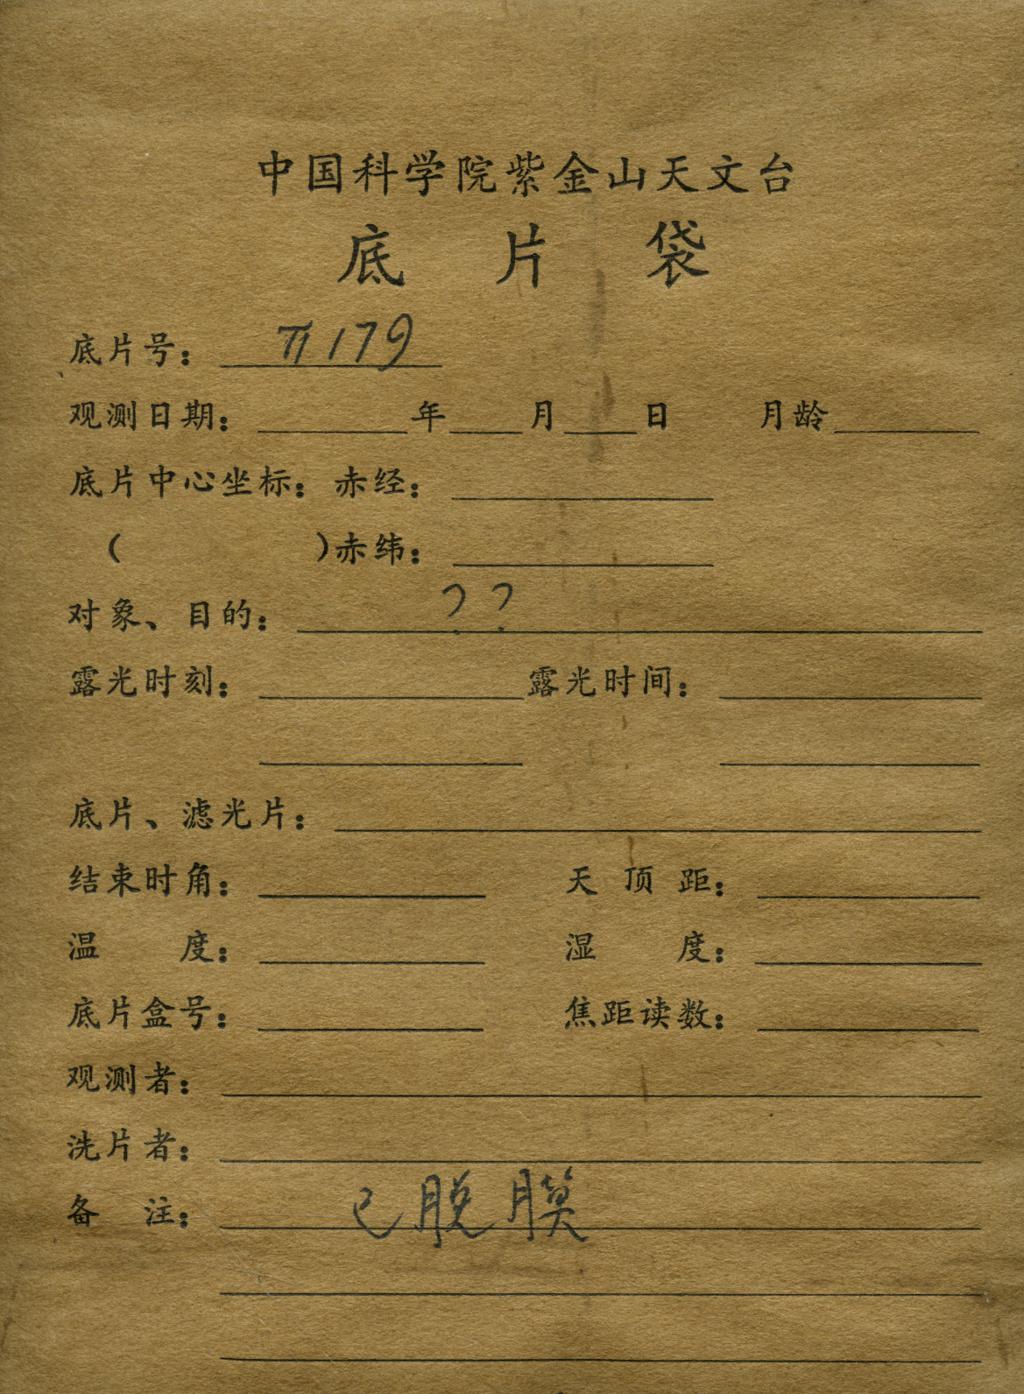 中国科学院紫金山天文台
底片袋
底片号: π179
观测日期: 年 月 日 月龄
底片中心坐标: 赤经:
( )赤纬:
对象、目的: ? ?
露光时刻: 露光时间:
底片、滤光片:
结束时角: 天顶距:
温度: 湿度:
底片盒号: 焦距读数:
观测者:
洗片者:
备注: 已脱膜